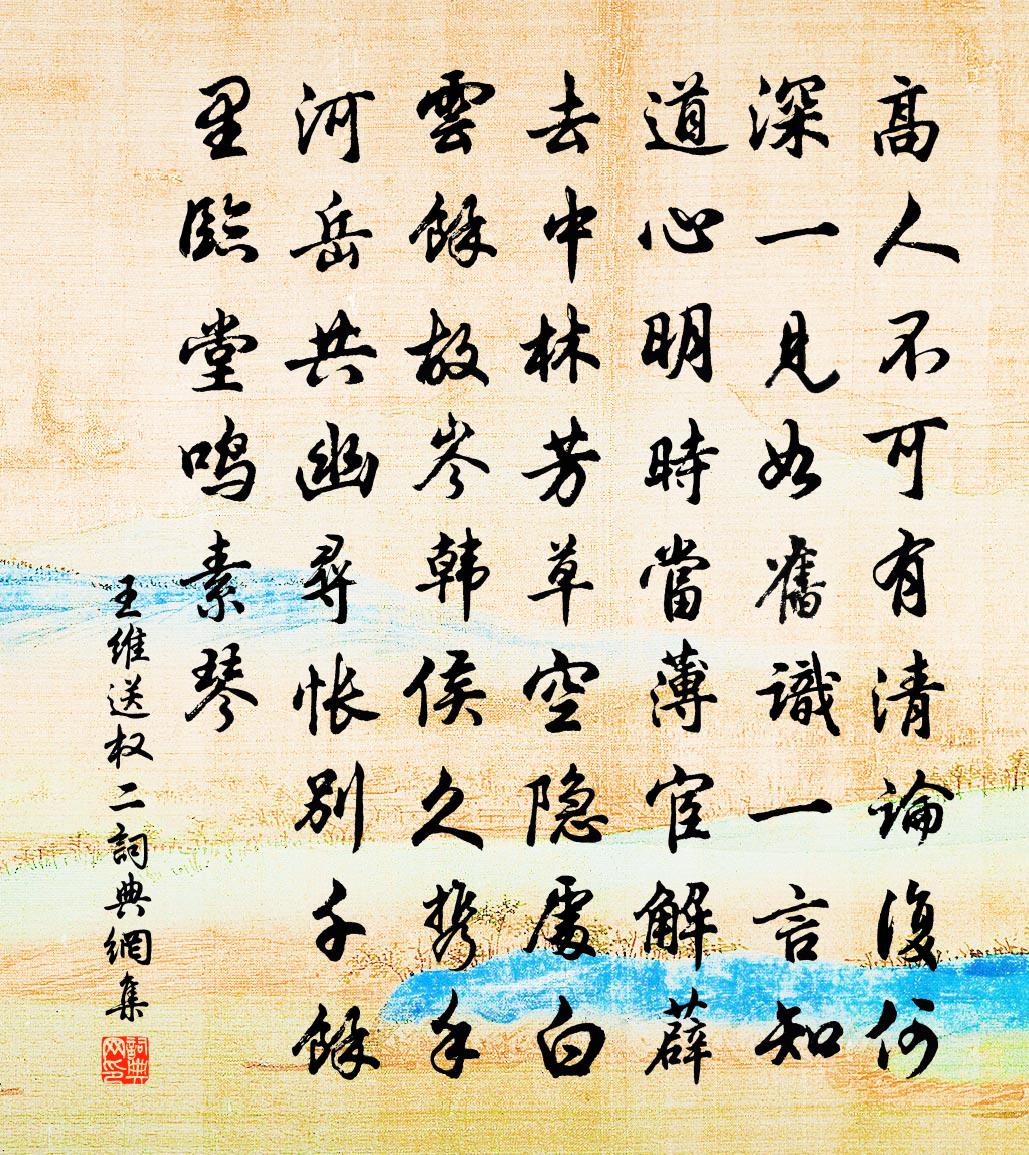 高人不可有清論復何
深一見如舊識一言知
道心明時當薄宦解薜
去中林芳草空隐處白
雲餘故岑韩侯久携手
河岳共幽尋怅別千餘
里臨堂鸣素琴
王维送权二詞典網集
詞典网印